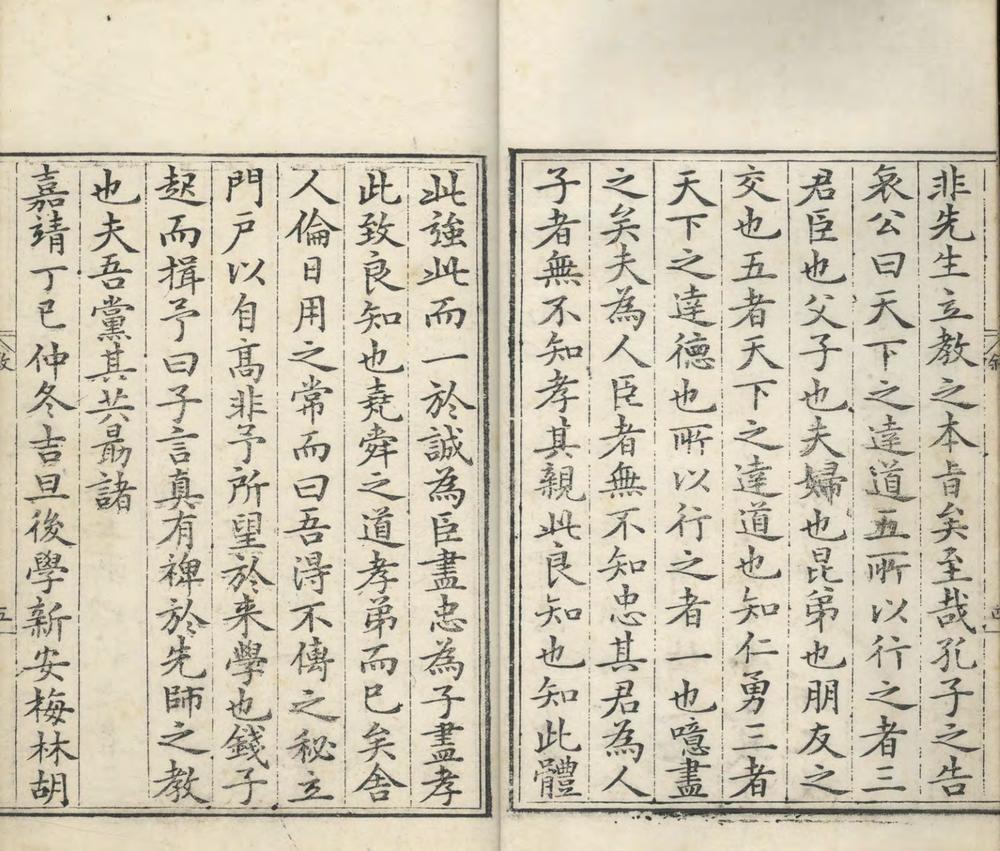 非先生立教之本旨矣至哉孔子之告
哀公曰天下之達道五所以行之者三
君臣也父子也夫婦也昆弟也朋友之
交也五者天下之達道也知仁勇三者
天下之達德也所以行之者一也噫盡
之矣夫為人臣者無不知忠其君為人
子者無不知孝其親此良知也知此體
此強此而一於誠為臣盡忠為子盡孝
此致良知也堯舜之道孝弟而已矣舍
人倫日用之常而曰吾得不傳之秘立
門戶以自高非予所望於来學也錢子
起而揖予曰子言真有裨於先師之教
也夫吾黨其共勗諸
嘉靖丁巳仲冬吉旦後學新安梅林胡
五